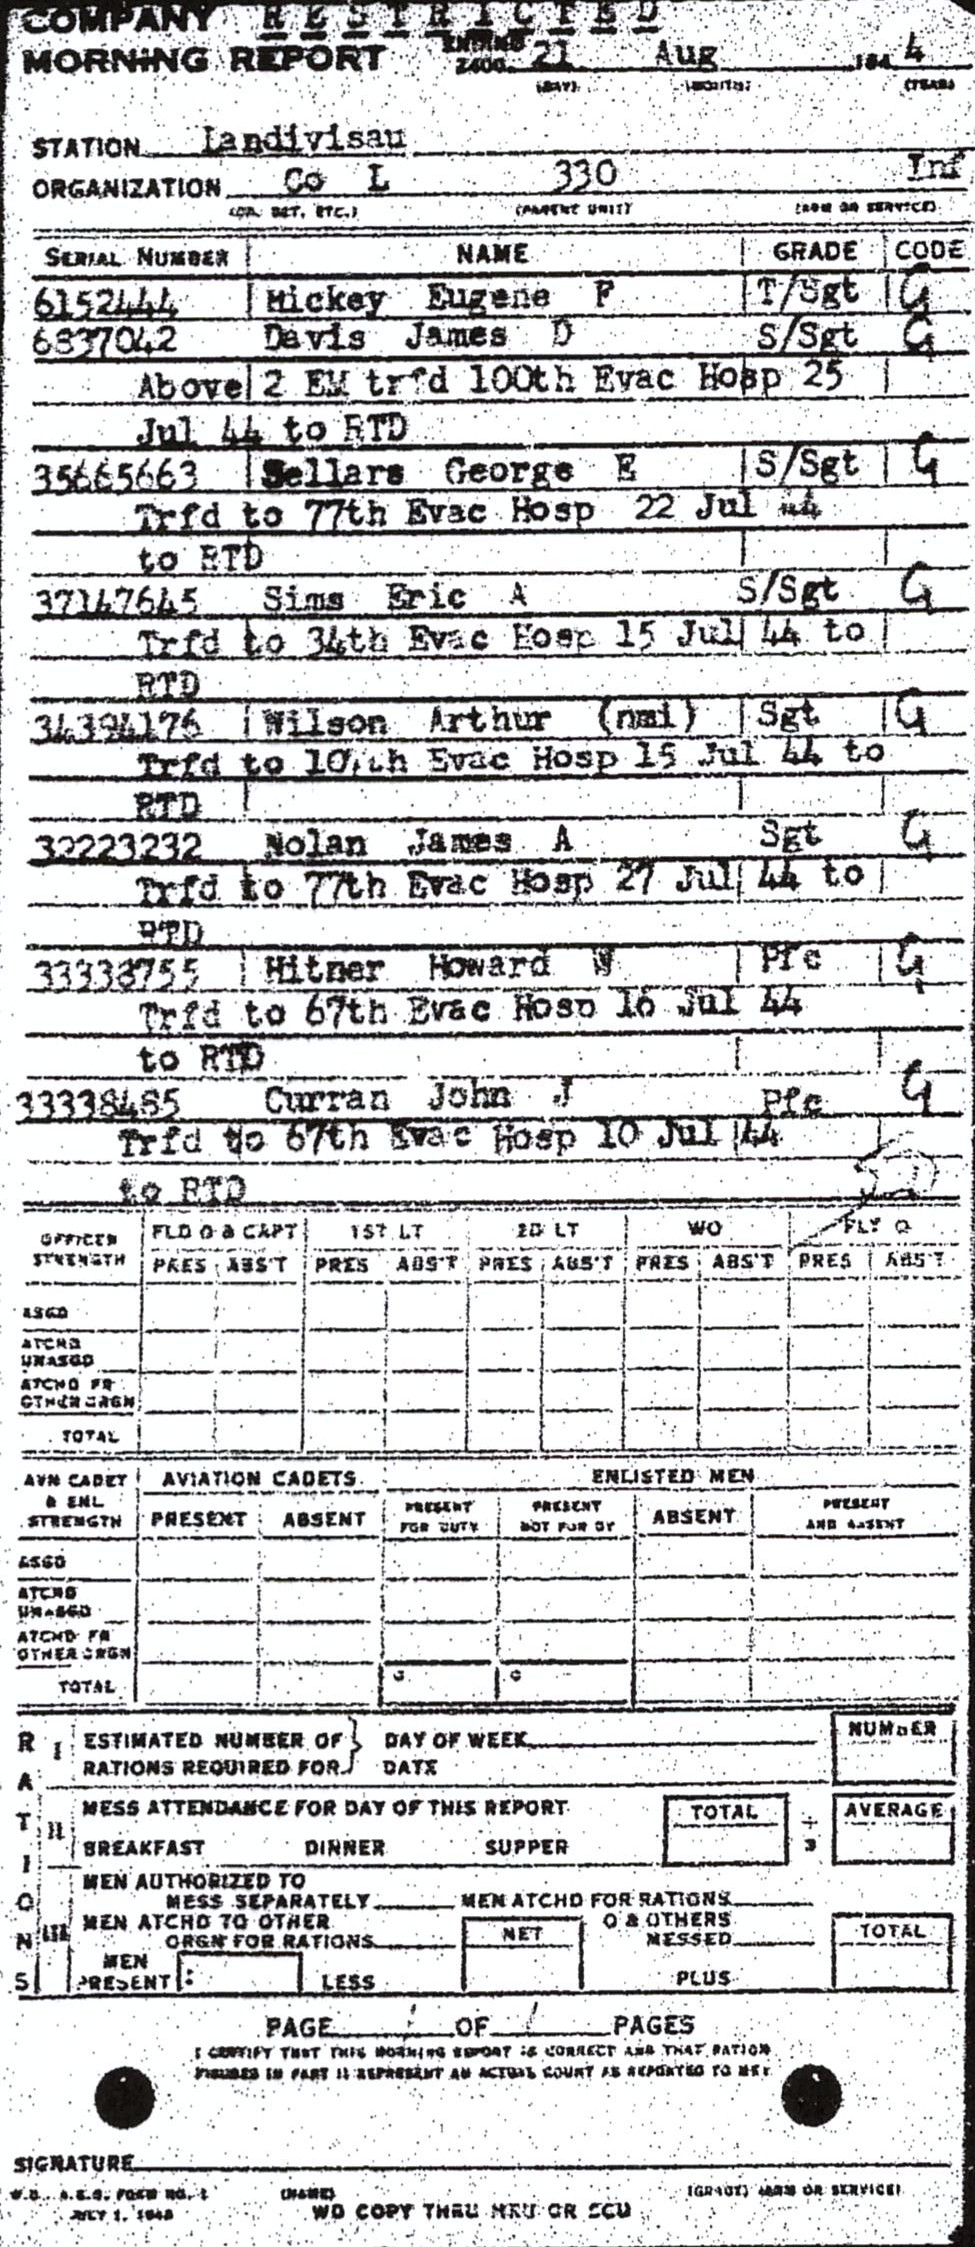 COMPANY RESTRICTED
MORNING REPORT ENDING 2400 21 Aug 194 4
(DAY) (MONTH) (YEAR)
STATION Landivisau
ORGANIZATION Co L 330 Inf
(CO. DET. ETC.) (PARENT UNIT) (ARM OR SERVICE)
SERIAL NUMBER NAME GRADE CODE
6152444 Hickey Eugene F T/Sgt G
6837042 Davis James D S/Sgt G
Above 2 EM trfd 100th Evac Hosp 25
Jul 44 to RTD
35665663 Sellars George E S/Sgt G
Trfd to 77th Evac Hosp 22 Jul 44
to RTD
37147645 Sims Eric A S/Sgt G
Trfd to 34th Evac Hosp 15 Jul 44 to
RTD
34394176 Wilson Arthur (nmi) Sgt G
Trfd to 104th Evac Hosp 15 Jul 44 to
RTD
32223232 Nolan James A Sgt G
Trfd to 77th Evac Hosp 27 Jul 44 to
RTD
33338755 Hitner Howard W Pfc G
Trfd to 67th Evac Hosp 16 Jul 44
to RTD
33338485 Curran John J Pfc G
Trfd to 67th Evac Hosp 10 Jul 44
to RTD
OFFICER STRENGTH FLD O & CAPT 1ST LT 2D LT WO FLT O
PRES ABS'T PRES ABS'T PRES ABS'T PRES ABS'T PRES ABS'T
ASGD
ATCHD UNASGD
ATCHD FR OTHER ORGN
TOTAL
AVN CADET & ENL STRENGTH AVIATION CADETS ENLISTED MEN
PRESENT ABSENT PRESENT FOR DUTY PRESENT NOT FOR DY ABSENT PRESENT AND ABSENT
ASGD
ATCHD UNASGD
ATCHD FR OTHER ORGN
TOTAL
RATIONS
I ESTIMATED NUMBER OF } DAY OF WEEK NUMBER
RATIONS REQUIRED FOR DATE
II MESS ATTENDANCE FOR DAY OF THIS REPORT TOTAL ÷ 3 AVERAGE
BREAKFAST DINNER SUPPER
III MEN AUTHORIZED TO
MESS SEPARATELY MEN ATCHD FOR RATIONS
MEN ATCHD TO OTHER NET O & OTHERS TOTAL
ORGN FOR RATIONS MESSED
MEN PRESENT LESS PLUS
PAGE 1 OF 1 PAGES
I CERTIFY THAT THIS MORNING REPORT IS CORRECT AND THAT RATION
FIGURES IN PART II REPRESENT AN ACTUAL COUNT AS REPORTED TO ME.
SIGNATURE
W.D., A.G.O. FORM NO. 1 (NAME) (GRADE) (ARM OR SERVICE)
JULY 1, 1943 WD COPY THRU MRU OR SCU